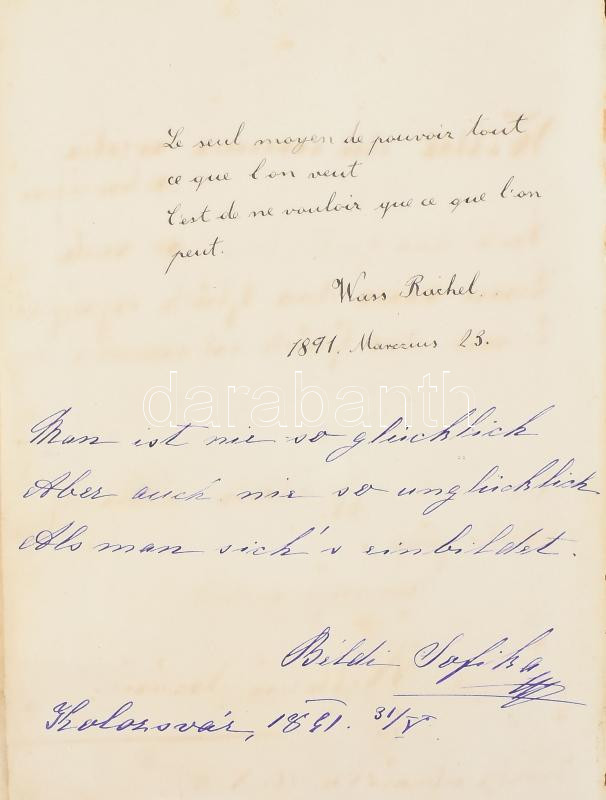 Le seul moyen de pouvoir tout
ce que l'on veut
C'est de ne vouloir que ce que l'on
peut.
Wass Ráchel.
1891. Marczius 23.
darabanth
Man ist nie so glücklich
Aber auch nie so unglücklich
Als man sich's einbildet.
Béldi Sofika
Kolozsvár, 1891. 31/V